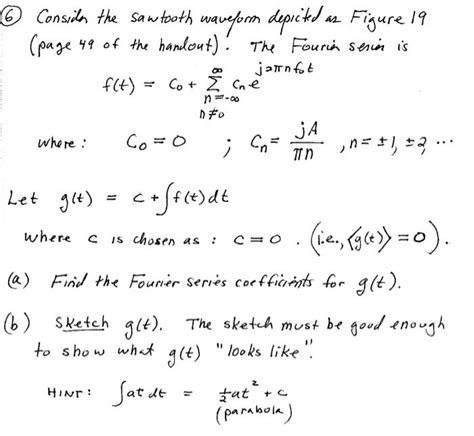 ⑥ Consider the sawtooth waveform depicted as Figure 19
(page 49 of the handout). The Fourier series is
f(t) = C₀ + Σ Cₙ e^{j2πnf₀t}
n=-∞
n≠0
∞
where: C₀ = 0 ; Cₙ = jA/πn , n = ±1, ±2, ...
Let g(t) = c + ∫f(t)dt
where c is chosen as : c = 0 . (i.e., ⟨g(t)⟩ = 0).
(a) Find the Fourier series coefficients for g(t).
(b) Sketch g(t). The sketch must be good enough
to show what g(t) "looks like".
HINT: ∫at dt = ½at² + c
(parabola)